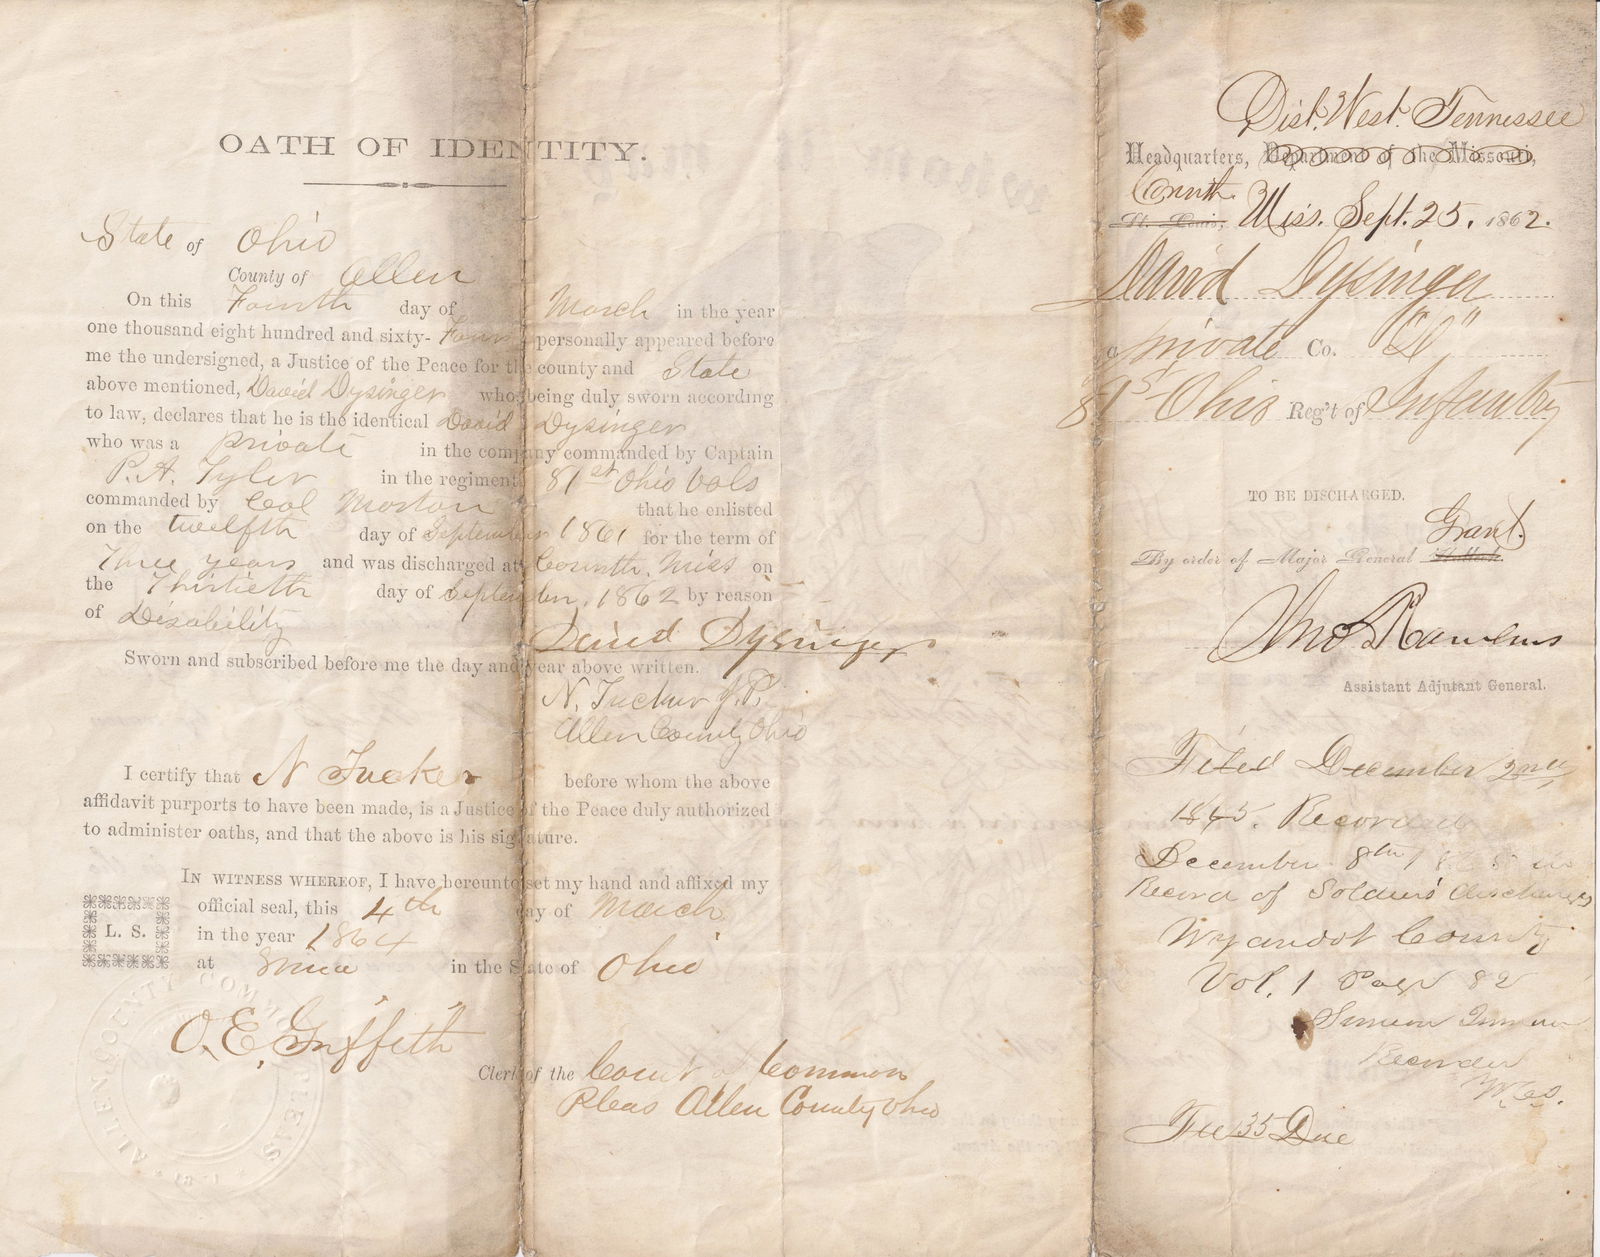 OATH OF IDENTITY.
State of Ohio
County of Allen
On this Fourth day of March in the year
one thousand eight hundred and sixty- Four personally appeared before
me the undersigned, a Justice of the Peace for the county and State
above mentioned, David Dysinger who, being duly sworn according
to law, declares that he is the identical David Dysinger
who was a private in the company commanded by Captain
P. A. Tyler in the regiment 81st Ohio Vols
commanded by Col Morton that he enlisted
on the twelfth day of September 1861 for the term of
Three years and was discharged at Corinth, Miss on
the Thirtieth day of September, 1862 by reason
of Disability
David Dysinger
Sworn and subscribed before me the day and year above written.
N. Tucker J. P.
Allen County Ohio
I certify that N Tucker before whom the above
affidavit purports to have been made, is a Justice of the Peace duly authorized
to administer oaths, and that the above is his signature.
IN WITNESS WHEREOF, I have hereunto set my hand and affixed my
official seal, this 4th day of March
L. S.
in the year 1864
at Lima in the State of Ohio
O. E. Griffith
Clerk of the Court of Common
Pleas Allen County Ohio
ALLEN COUNTY COMMON PLEAS
Dist. West. Tennessee
Headquarters, Department of the Missouri,
Corinth.
St. Louis, Miss. Sept. 25, 1862.
David Dysinger
a private Co.
81st Ohio Reg't of Infantry
TO BE DISCHARGED.
Grant.
By order of Major General Halleck.
Jno A Rawlins
Assistant Adjutant General.
Filed December 2nd
1865. Recorded
December 8th 1865 in
Record of Soldiers' discharges
Wyandot County
Vol. 1 Page 82
Recorder
W. Co.
Fee 35 Due